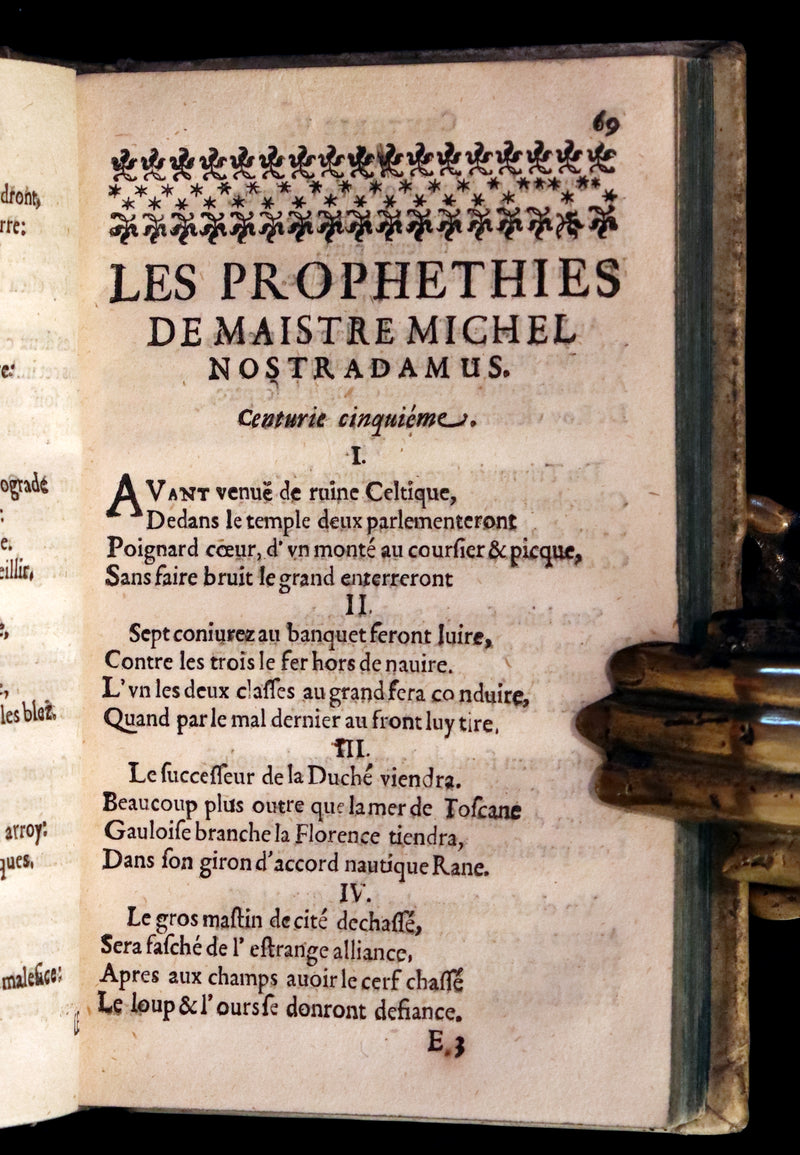 dront,
rre:
e:
ogradé
:
e.
eillir,
e,
e,
les blez.
arroy:
ques,
malefice:
69
LES PROPHETHIES
DE MAISTRE MICHEL
NOSTRADAMUS.
Centurie cinquiéme.
I.
AVANT venuë de ruine Celtique,
Dedans le temple deux parlementeront
Poignard cœur, d'vn monté au courſier & picque,
Sans faire bruit le grand enterreront
II.
Sept coniurez au banquet feront luire,
Contre les trois le fer hors de nauire.
L'vn les deux claſſes au grand fera conduire,
Quand par le mal dernier au front luy tire.
III.
Le ſucceſſeur de la Duché viendra.
Beaucoup plus outre que la mer de Toſcane
Gauloiſe branche la Florence tiendra,
Dans ſon giron d'accord nautique Rane.
IV.
Le gros maſtin de cité dechaſſé,
Sera faſché de l'eſtrange alliance,
Apres aux champs auoir le cerf chaſſé
Le loup & l'ours ſe donront defiance.
E 3